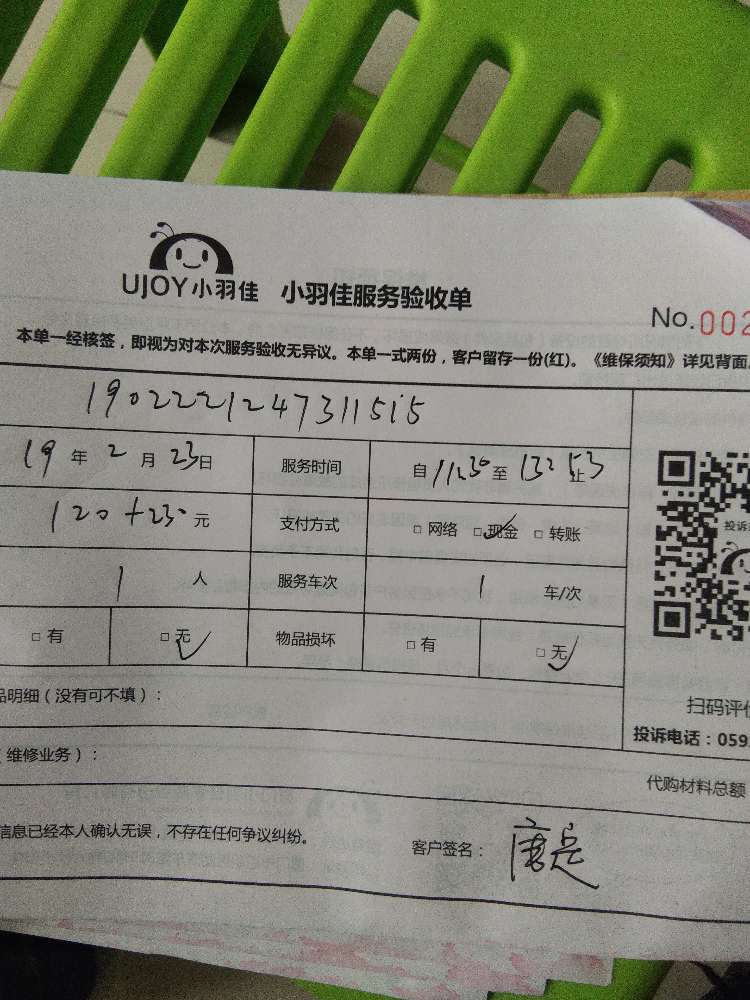 UJOY小羽佳 小羽佳服务验收单
No.002
本单一经核签，即视为对本次服务验收无异议。本单一式两份，客户留存一份(红)。《维保须知》详见背面。
1902221247311515
19年2月23日 服务时间 自11:30至13:53止
120+230元 支付方式 □网络 □现金 □转账
1人 服务车次 1车/次
□有 □无 物品损坏 □有 □无
品明细（没有可不填）：
扫码评价
投诉电话：059
（维修业务）：
代购材料总额
信息已经本人确认无误，不存在任何争议纠纷。
客户签名：